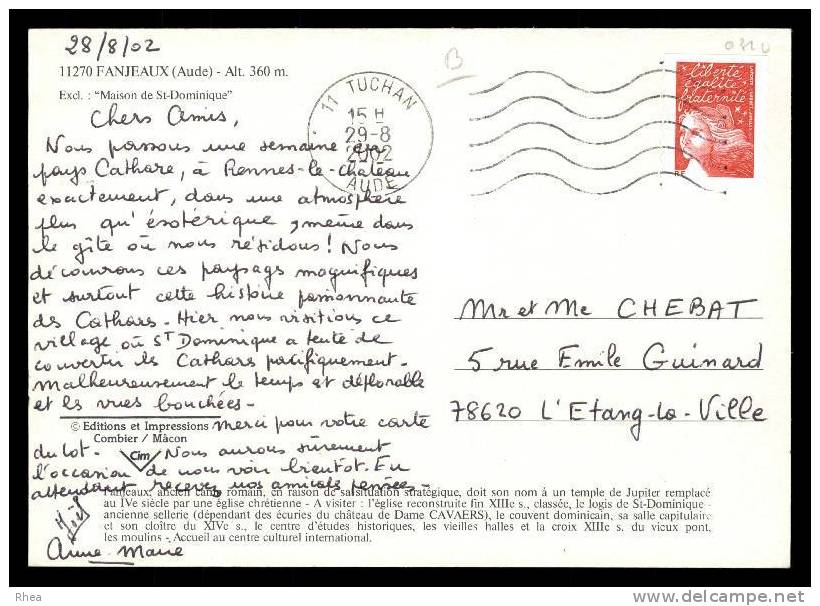 28/8/02
11270 FANJEAUX (Aude) - Alt. 360 m.
Excl. : "Maison de St-Dominique"
B
11 TUCHAN
15 H
29-8
2002
AUDE
liberté
égalité
fraternité
RF
Chers Amis,
Nous passons une semaine en
pays Cathare, à Rennes-le-château
exactement, dans une atmosphère
plus qu'ésotérique, même dans
le gîte où nous résidons! Nous
découvrons ces paysages magnifiques
et surtout cette histoire passionnante
des Cathares. Hier nous visitions ce
village où ST Dominique a tenté de
convertir les Cathares pacifiquement.
Malheureusement le temps est déplorable
et les vues bouchées.
© Editions et Impressions merci pour votre carte
Combier / Mâcon
du Lot. Nous aurons sûrement
Cim
l'occasion de nous voir bientôt. En
attendant recevez nos amicales pensées.
Mr et Me CHEBAT
5 rue Emile Guinard
78620 L'Etang-la-Ville
Fanjeaux, ancien camp romain, en raison de sa situation stratégique, doit son nom à un temple de Jupiter remplacé
au IVe siècle par une église chrétienne - A visiter : l'église reconstruite fin XIIIe s., classée, le logis de St-Dominique -
ancienne sellerie (dépendant des écuries du château de Dame CAVAERS), le couvent dominicain, sa salle capitulaire
et son cloître du XIVe s., le centre d'études historiques, les vieilles halles et la croix XIIIe s. du vieux pont,
les moulins - Accueil au centre culturel international.
Anne-Marie
Rhea
www.delcampe.net